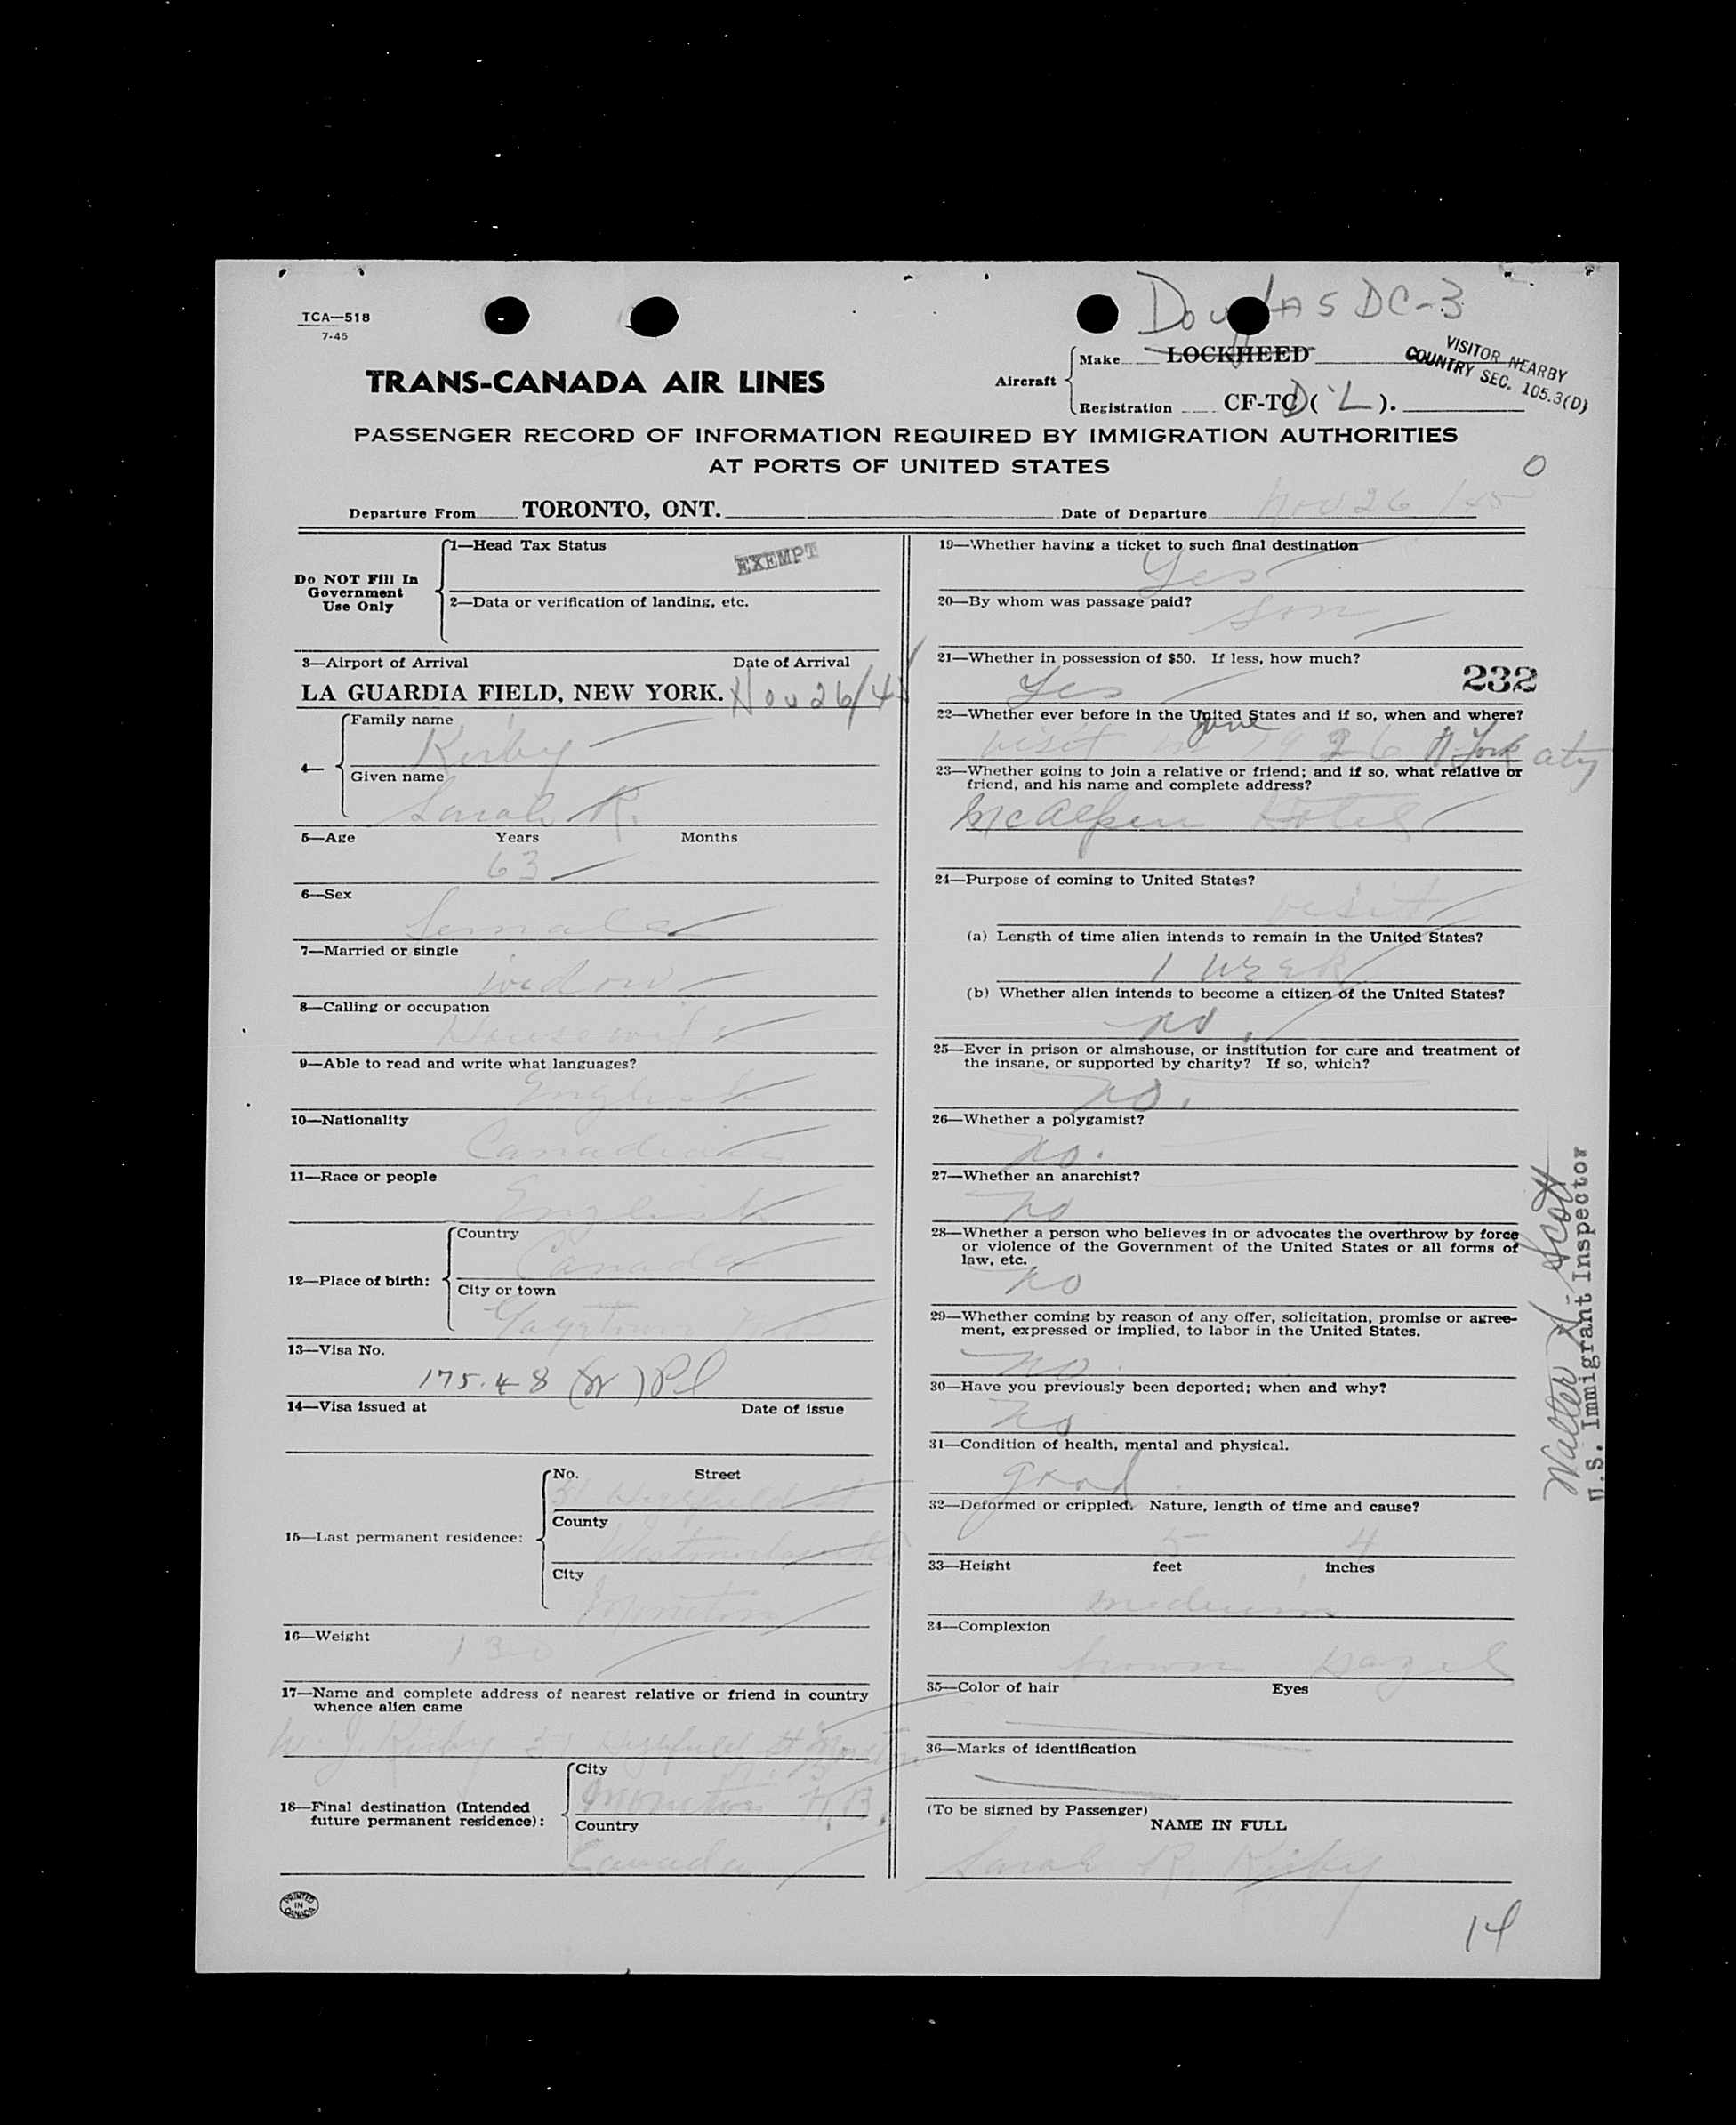 TCA—518
7-45
Douglas DC-3
TRANS-CANADA AIR LINES
Aircraft
Make LOCKHEED
Registration CF-TCD ( L ).
VISITOR NEARBY
COUNTRY SEC. 105.3(D)
PASSENGER RECORD OF INFORMATION REQUIRED BY IMMIGRATION AUTHORITIES
AT PORTS OF UNITED STATES
0
Departure From TORONTO, ONT. Date of Departure Nov 26/45
Do NOT Fill In
Government
Use Only
1—Head Tax Status
EXEMPT
2—Data or verification of landing, etc.
3—Airport of Arrival Date of Arrival
LA GUARDIA FIELD, NEW YORK. Nov 26/45
4—
Family name
Kirby
Given name
Sarah R.
5—Age Years Months
63
6—Sex
Female
7—Married or single
widow
8—Calling or occupation
Housewife
9—Able to read and write what languages?
English
10—Nationality
Canadian
11—Race or people
English
12—Place of birth:
Country
Canada
City or town
Gagetown
13—Visa No.
175.48
14—Visa issued at Date of issue
15—Last permanent residence:
No. Street
Highfield St
County
Westmorland
City
Moncton
16—Weight
130
17—Name and complete address of nearest relative or friend in country
whence alien came
W. J. Kirby Highfield St Moncton
N.B.
18—Final destination (Intended
future permanent residence):
City
Moncton N.B.
Country
Canada
PRINTED
IN
CANADA
19—Whether having a ticket to such final destination
Yes
20—By whom was passage paid?
Son
21—Whether in possession of $50. If less, how much?
232
Yes
22—Whether ever before in the United States and if so, when and where?
June
visit in 1926 N York city
23—Whether going to join a relative or friend; and if so, what relative or
friend, and his name and complete address?
McAlpin Hotel
24—Purpose of coming to United States?
visit
(a) Length of time alien intends to remain in the United States?
1 week
(b) Whether alien intends to become a citizen of the United States?
no.
25—Ever in prison or almshouse, or institution for care and treatment of
the insane, or supported by charity? If so, which?
no.
26—Whether a polygamist?
no.
27—Whether an anarchist?
no
28—Whether a person who believes in or advocates the overthrow by force
or violence of the Government of the United States or all forms of
law, etc.
no
29—Whether coming by reason of any offer, solicitation, promise or agree-
ment, expressed or implied, to labor in the United States.
no.
30—Have you previously been deported; when and why?
no
31—Condition of health, mental and physical.
good
32—Deformed or crippled. Nature, length of time and cause?
5 4
33—Height feet inches
medium
34—Complexion
brown Hazel
35—Color of hair Eyes
36—Marks of identification
(To be signed by Passenger)
NAME IN FULL
Sarah R. Kirby
Walter Scott
U.S. Immigrant Inspector
14